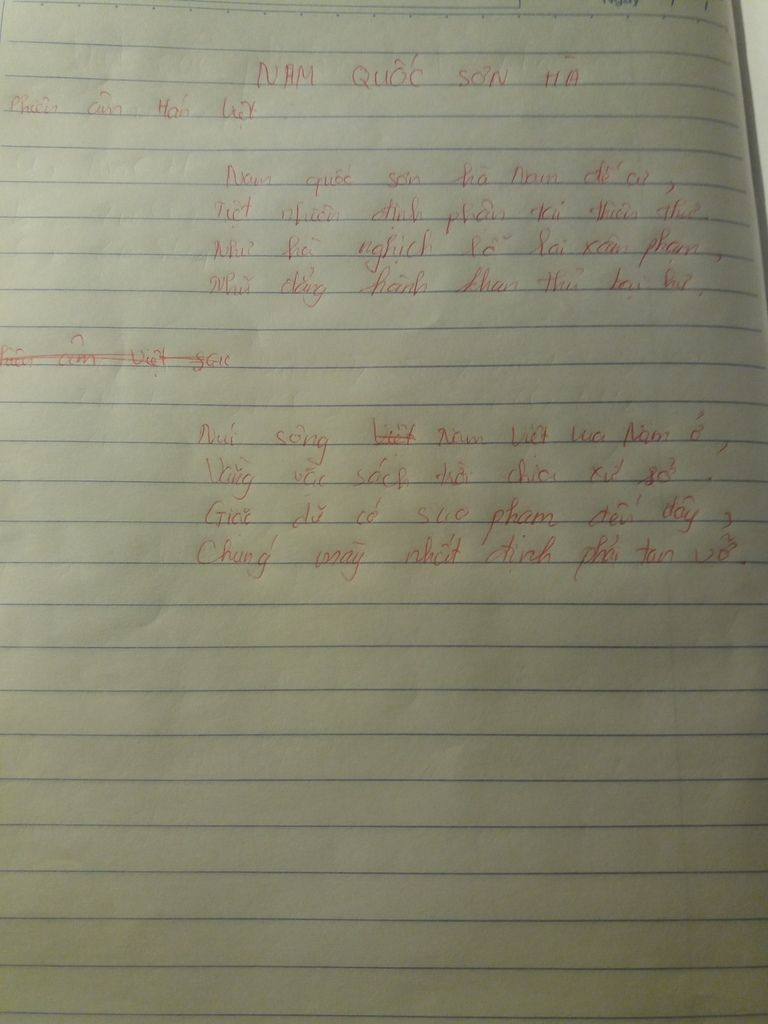 Ngày / /
NAM QUỐC SƠN HÀ
Phiên âm Hán Việt
Nam quốc sơn hà Nam đế cư,
Tiệt nhiên định phận tại thiên thư.
Như hà nghịch lỗ lai xâm phạm,
Nhữ đẳng hành khan thủ bại hư.
Phiên âm Việt
Núi sông Việt Nam Việt vua Nam ở,
Vằng vặc sách trời chia xứ sở.
Giặc dữ cớ sao phạm đến đây,
Chúng mày nhất định phải tan vỡ.